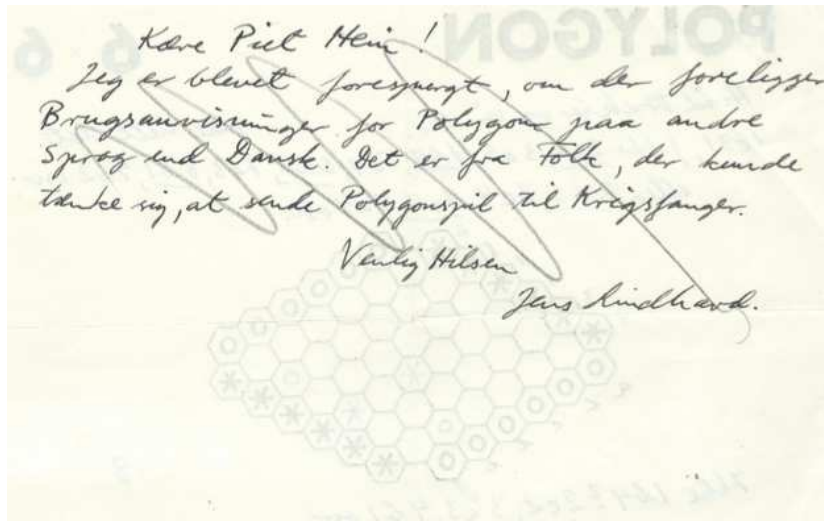 Kære Piet Hein!
Jeg er blevet forespurgt, om der foreligger
Brugsanvisninger for Polygon paa andre
Sprog end Dansk. Det er fra Folk, der kunde
tænke sig, at sende Polygonspil til Krigsfanger.
Venlig Hilsen
Jens Lindhard.
POLYGON